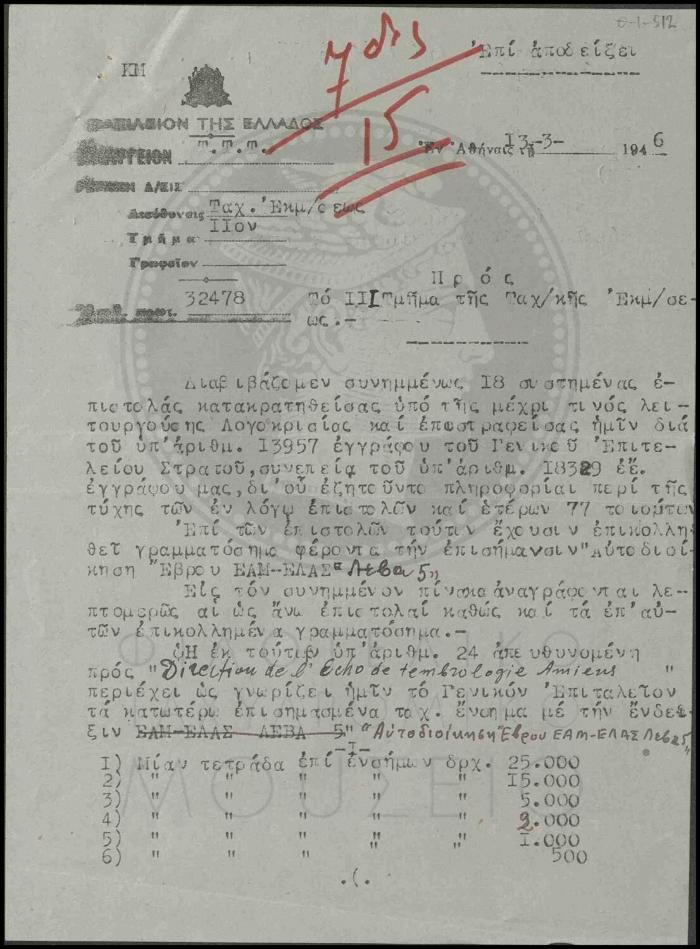 θ-1-512
7 dis
15
Ἐπί ἀποδείξει
ΚΜ
ΒΑΣΙΛΕΙΟΝ ΤΗΣ ΕΛΛΑΔΟΣ
Τ.Τ.Τ.
Ἐν Ἀθήναις τῇ 13-3- 1946
Διεύθυνσις Ταχ. Ἐκμ/σεως
Τμῆμα ΙΙον
Γραφεῖον
Πρός
32478 Τό ΙΙΙ Τμῆμα τῆς Ταχ/κῆς Ἐκμ/σε-
ως.-
Διαβιβάζομεν συνημμένως 18 συστημένας ἐ-
πιστολάς κατακρατηθείσας ὑπό τῆς μέχρι τινός λει-
τουργούσης Λογοκρισίας καί ἐπιστραφείσας ἡμῖν διά
τοῦ ὑπ'ἀριθμ. 13957 ἐγγράφου τοῦ Γενικοῦ Ἐπιτε-
λείου Στρατοῦ, συνεπείᾳ τοῦ ὑπ'ἀριθμ. 18329 ἐ.ἔ.
ἐγγράφου μας, δι'οὗ ἐζητοῦντο πληροφορίαι περί τῆς
τύχης τῶν ἐν λόγῳ ἐπιστολῶν καί ἑτέρων 77 τοιούτων
Ἐπί τῶν ἐπιστολῶν τούτων ἔχουσιν ἐπικολλη-
θεῖ γραμματόσημα φέροντα τήν ἐπισήμανσιν "Αὐτοδιοί-
κηση Ἔβρου ΕΑΜ-ΕΛΑΣ" Λεβα 5"
Εἰς τόν συνημμένον πίνακα ἀναγράφονται λε-
πτομερῶς αἱ ὡς ἄνω ἐπιστολαί καθώς καί τά ἐπ'αὐ-
τῶν ἐπικολλημένα γραμματόσημα.-
Ἡ ἐκ τούτων ὑπ'ἀριθμ. 24 ἀπευθυνομένη
πρός "Direction de l'Echo de tembrologie Amiens "
περιέχει ὡς γνωρίζει ἡμῖν τό Γενικόν Ἐπιταλεῖον
τά κατωτέρω ἐπισημασμένα ταχ. ἔνσημα μέ τήν ἔνδει-
ξιν ΕΑΜ-ΕΛΑΣ ΛΕΒΑ 5" "Αὐτοδιοίκηση Ἔβρου ΕΑΜ-ΕΛΑΣ Λεβα 5"
-Ι-
1) Μίαν τετράδα ἐπί ἐνσήμων δρχ. 25.000
2) " " " " " 15.000
3) " " " " " 5.000
4) " " " " " 2.000
5) " " " " " 1.000
6) " " " " " 500
./.
ΦΙΛΟΤΕΛΙΚΟ
ΜΟΥΣΕΙΟ